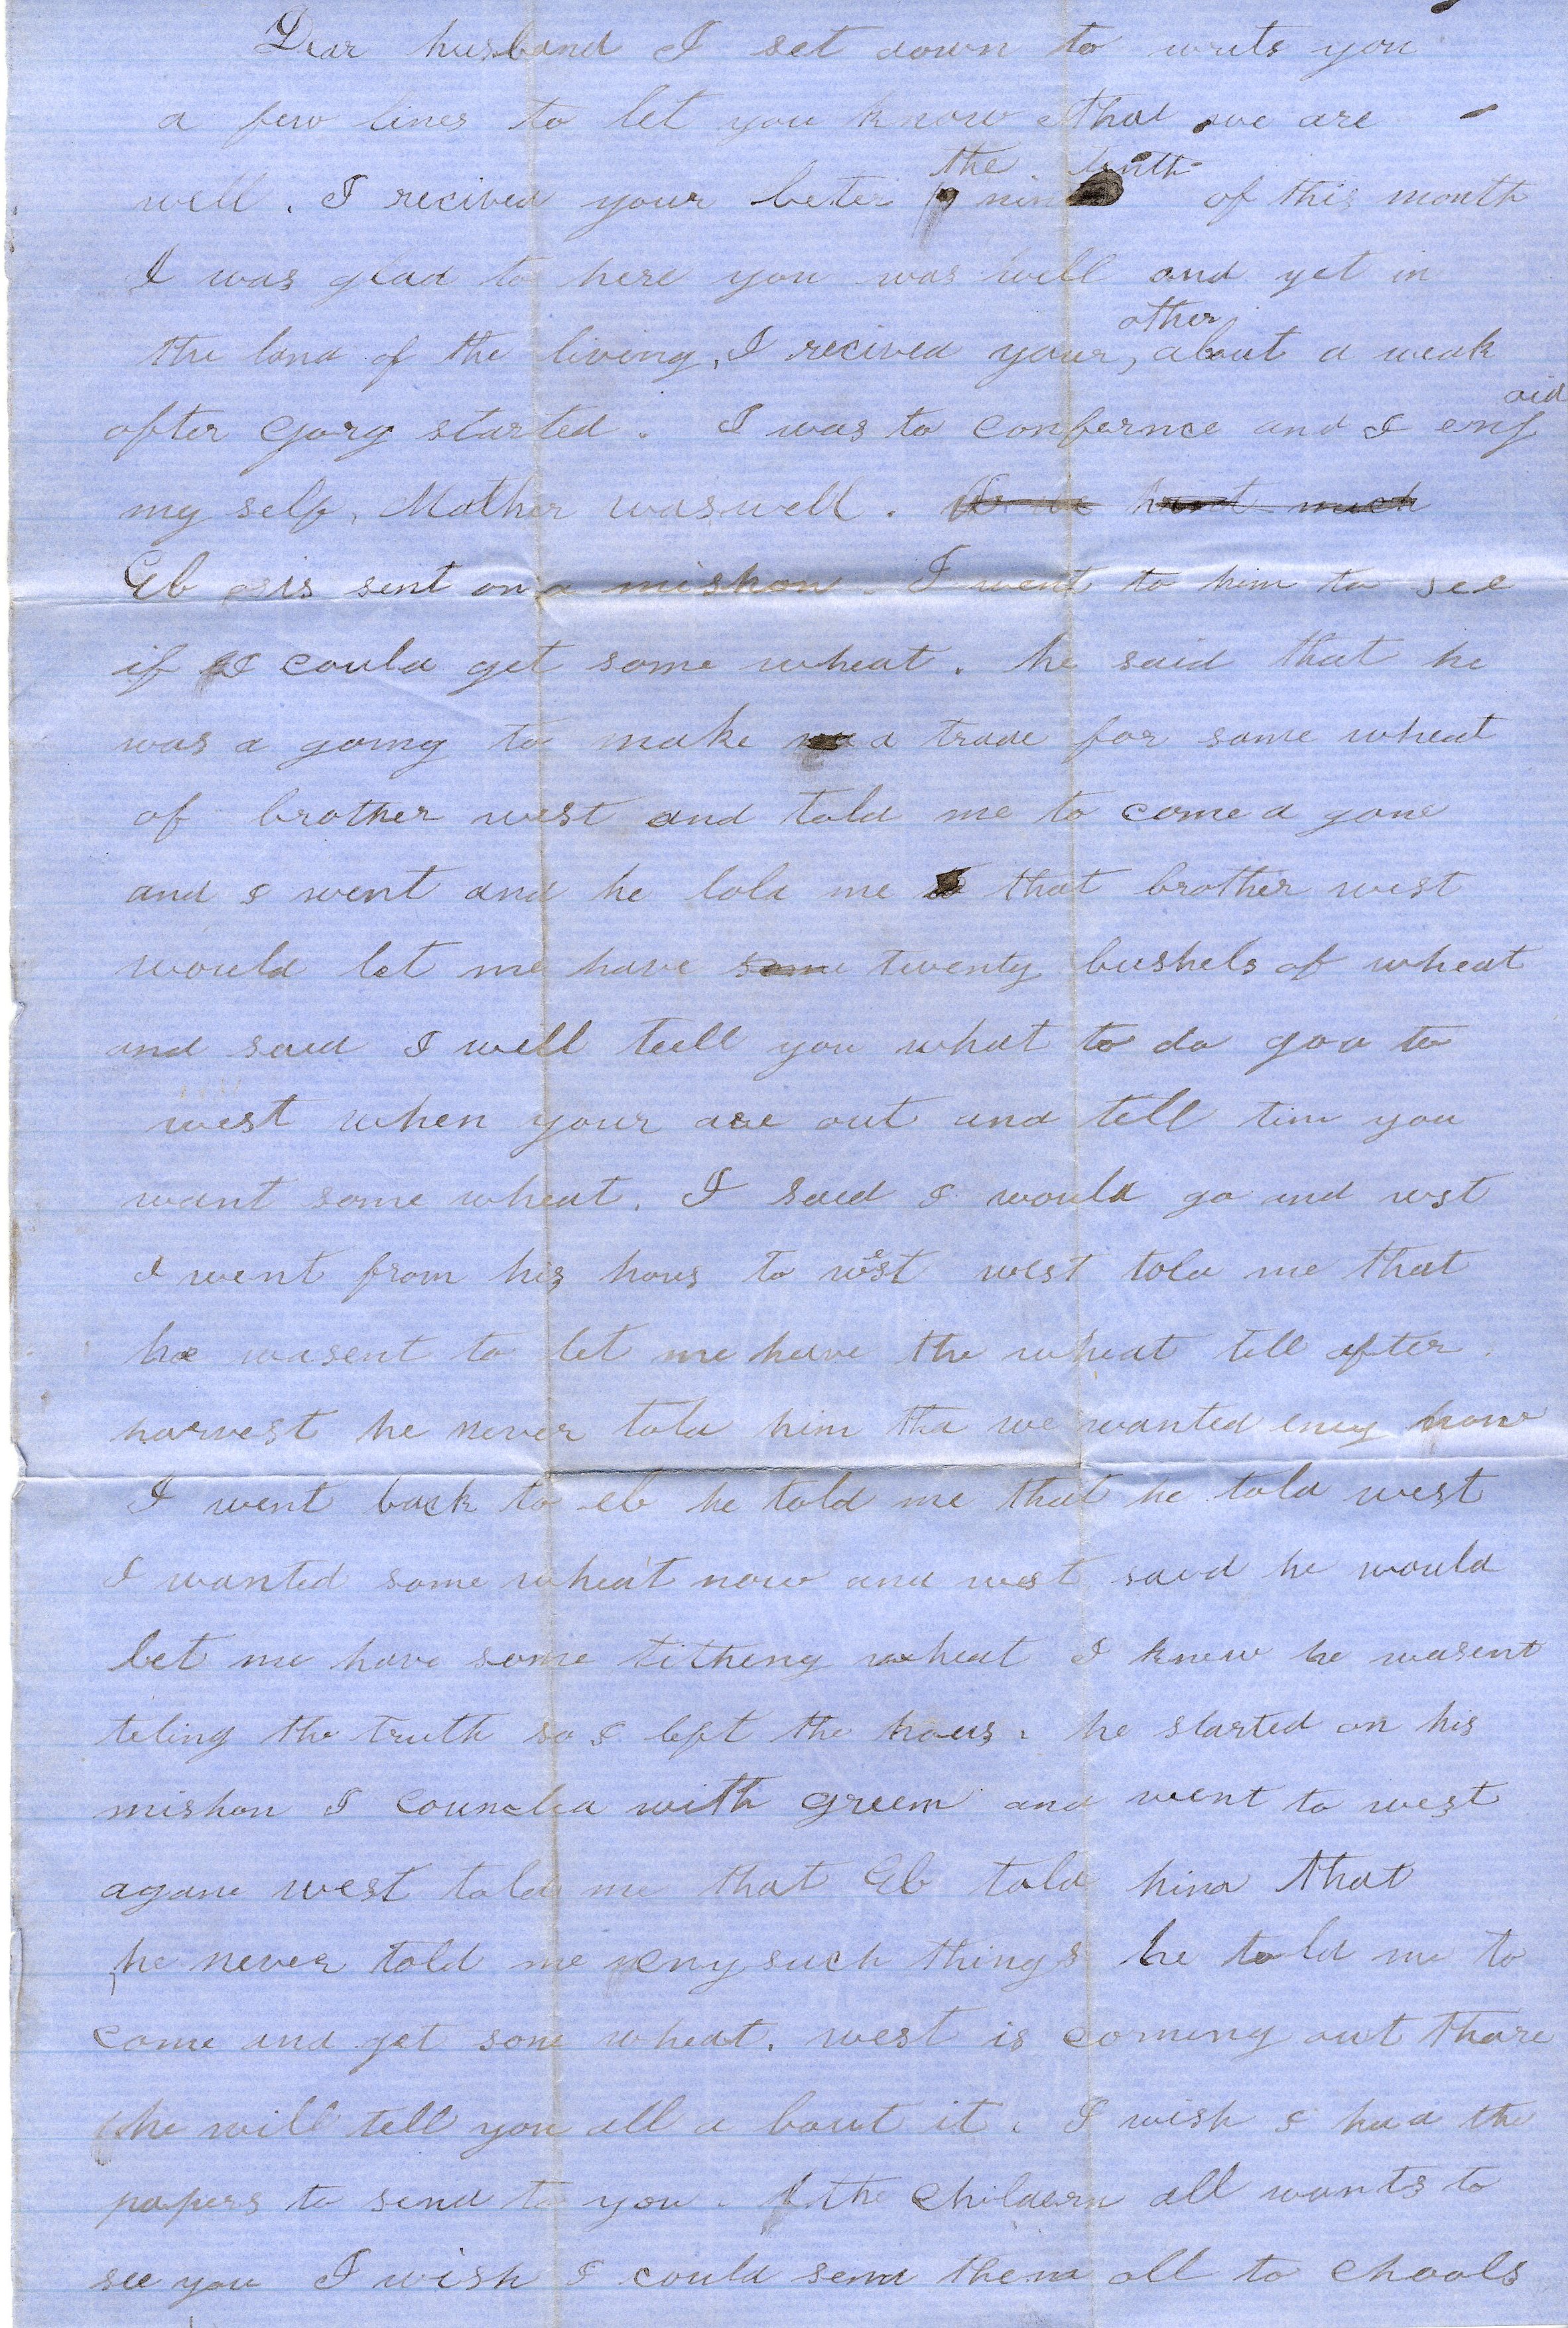 Dear husband I set down to write you
a few lines to let you know that we are
well. I recived your leter the tenth of this month
I was glad to here you was well and yet in
the land of the living, I recived your other, about a weak
after gorg started. I was to confernce and I engoid
my self, Mother was well. hant much
Eb is sent on a mishon. I went to him to see
if I could get some wheat. he said that he
was a going to make a trade for some wheat
of brother west and told me to come a gane
and I went and he told me that brother west
would let me have some twenty bushels of wheat
and said I will teell you what to do goo to
west when your are out and tell tim you
want some wheat. I said I would go and wst
I went from his hous to west west told me that
he wasent to let me have the wheat tell after
harvest he never told him tha we wanted eney now
I went back to eb he told me that he told west
I wanted some wheat now and west said he would
let me have some titheng wheat I knew he wasent
teling the truth so I left the hous. he started on his
mishon I counsled with green and went to west
agane west told me that Eb told him that
he never told me eny such things he told me to
come and get some wheat. west is comeng out thare
he will tell you all a bout it. I wish I had the
papers to send to you. the childern all wants to
see you I wish I could send them all to chools